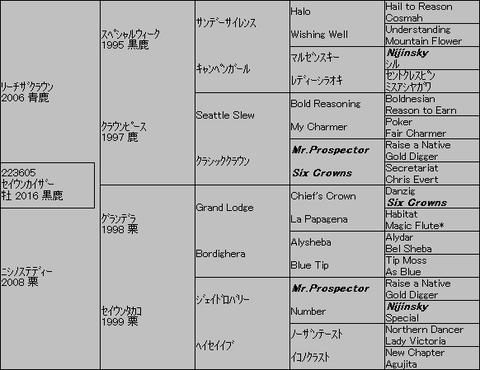 リーチザクラウン
2006 青鹿
223605
セイウンカイザー
牡 2016 黒鹿
ニシノステディー
2008 栗
スペシャルウィーク
1995 黒鹿
クラウンピース
1997 鹿
グランデラ
1998 栗
セイウンタカコ
1999 栗
サンデーサイレンス
キャンペンガール
Seattle Slew
クラシッククラウン
Grand Lodge
Bordighera
ジェイドロバリー
ヘイセイイブ
Halo
Wishing Well
マルゼンスキー
レディーシラオキ
Bold Reasoning
My Charmer
Mr.Prospector
Six Crowns
Chief's Crown
La Papagena
Alysheba
Blue Tip
Mr.Prospector
Number
ノーザンテースト
イコノクラスト
Hail to Reason
Cosmah
Understanding
Mountain Flower
Nijinsky
シル
セントクレスピン
ミスアシヤガワ
Boldnesian
Reason to Earn
Poker
Fair Charmer
Raise a Native
Gold Digger
Secretariat
Chris Evert
Danzig
Six Crowns
Habitat
Magic Flute*
Alydar
Bel Sheba
Tip Moss
As Blue
Raise a Native
Gold Digger
Nijinsky
Special
Northern Dancer
Lady Victoria
New Chapter
Agujita